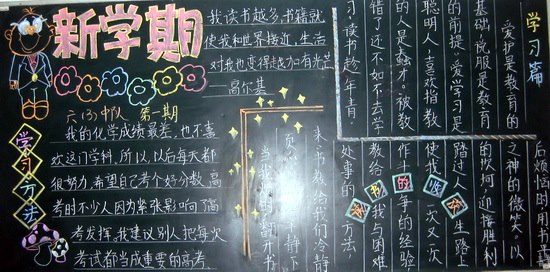 新学期
我读书越多,书籍就
使我和世界接近,生活
对我也变得越加有光芒
——高尔基
六(3)中队 第一期
学习方法
我的化学成绩最差,也不喜
欢这门学科,所以,以后每天都
很努力,希望自己考个好分数,高
考时不少人因为紧张影响了高
考发挥,我建议别人把每次
考试都当成重要的高考
学习篇
爱护是教育的
基础,说服是教育
的前提,爱学习是
聪明人,喜欢指教
的人是蠢才。被教
错了还不如不去学
习读书趁年青
当我翻开书
页静下
来,书教给我们冷静
处事的方法
教给我与困难
作斗争的经验
使我一次又一次
踏过人生路上
的坎坷,迎接胜利
之神的微笑,以
后烦恼时用书
书的收获